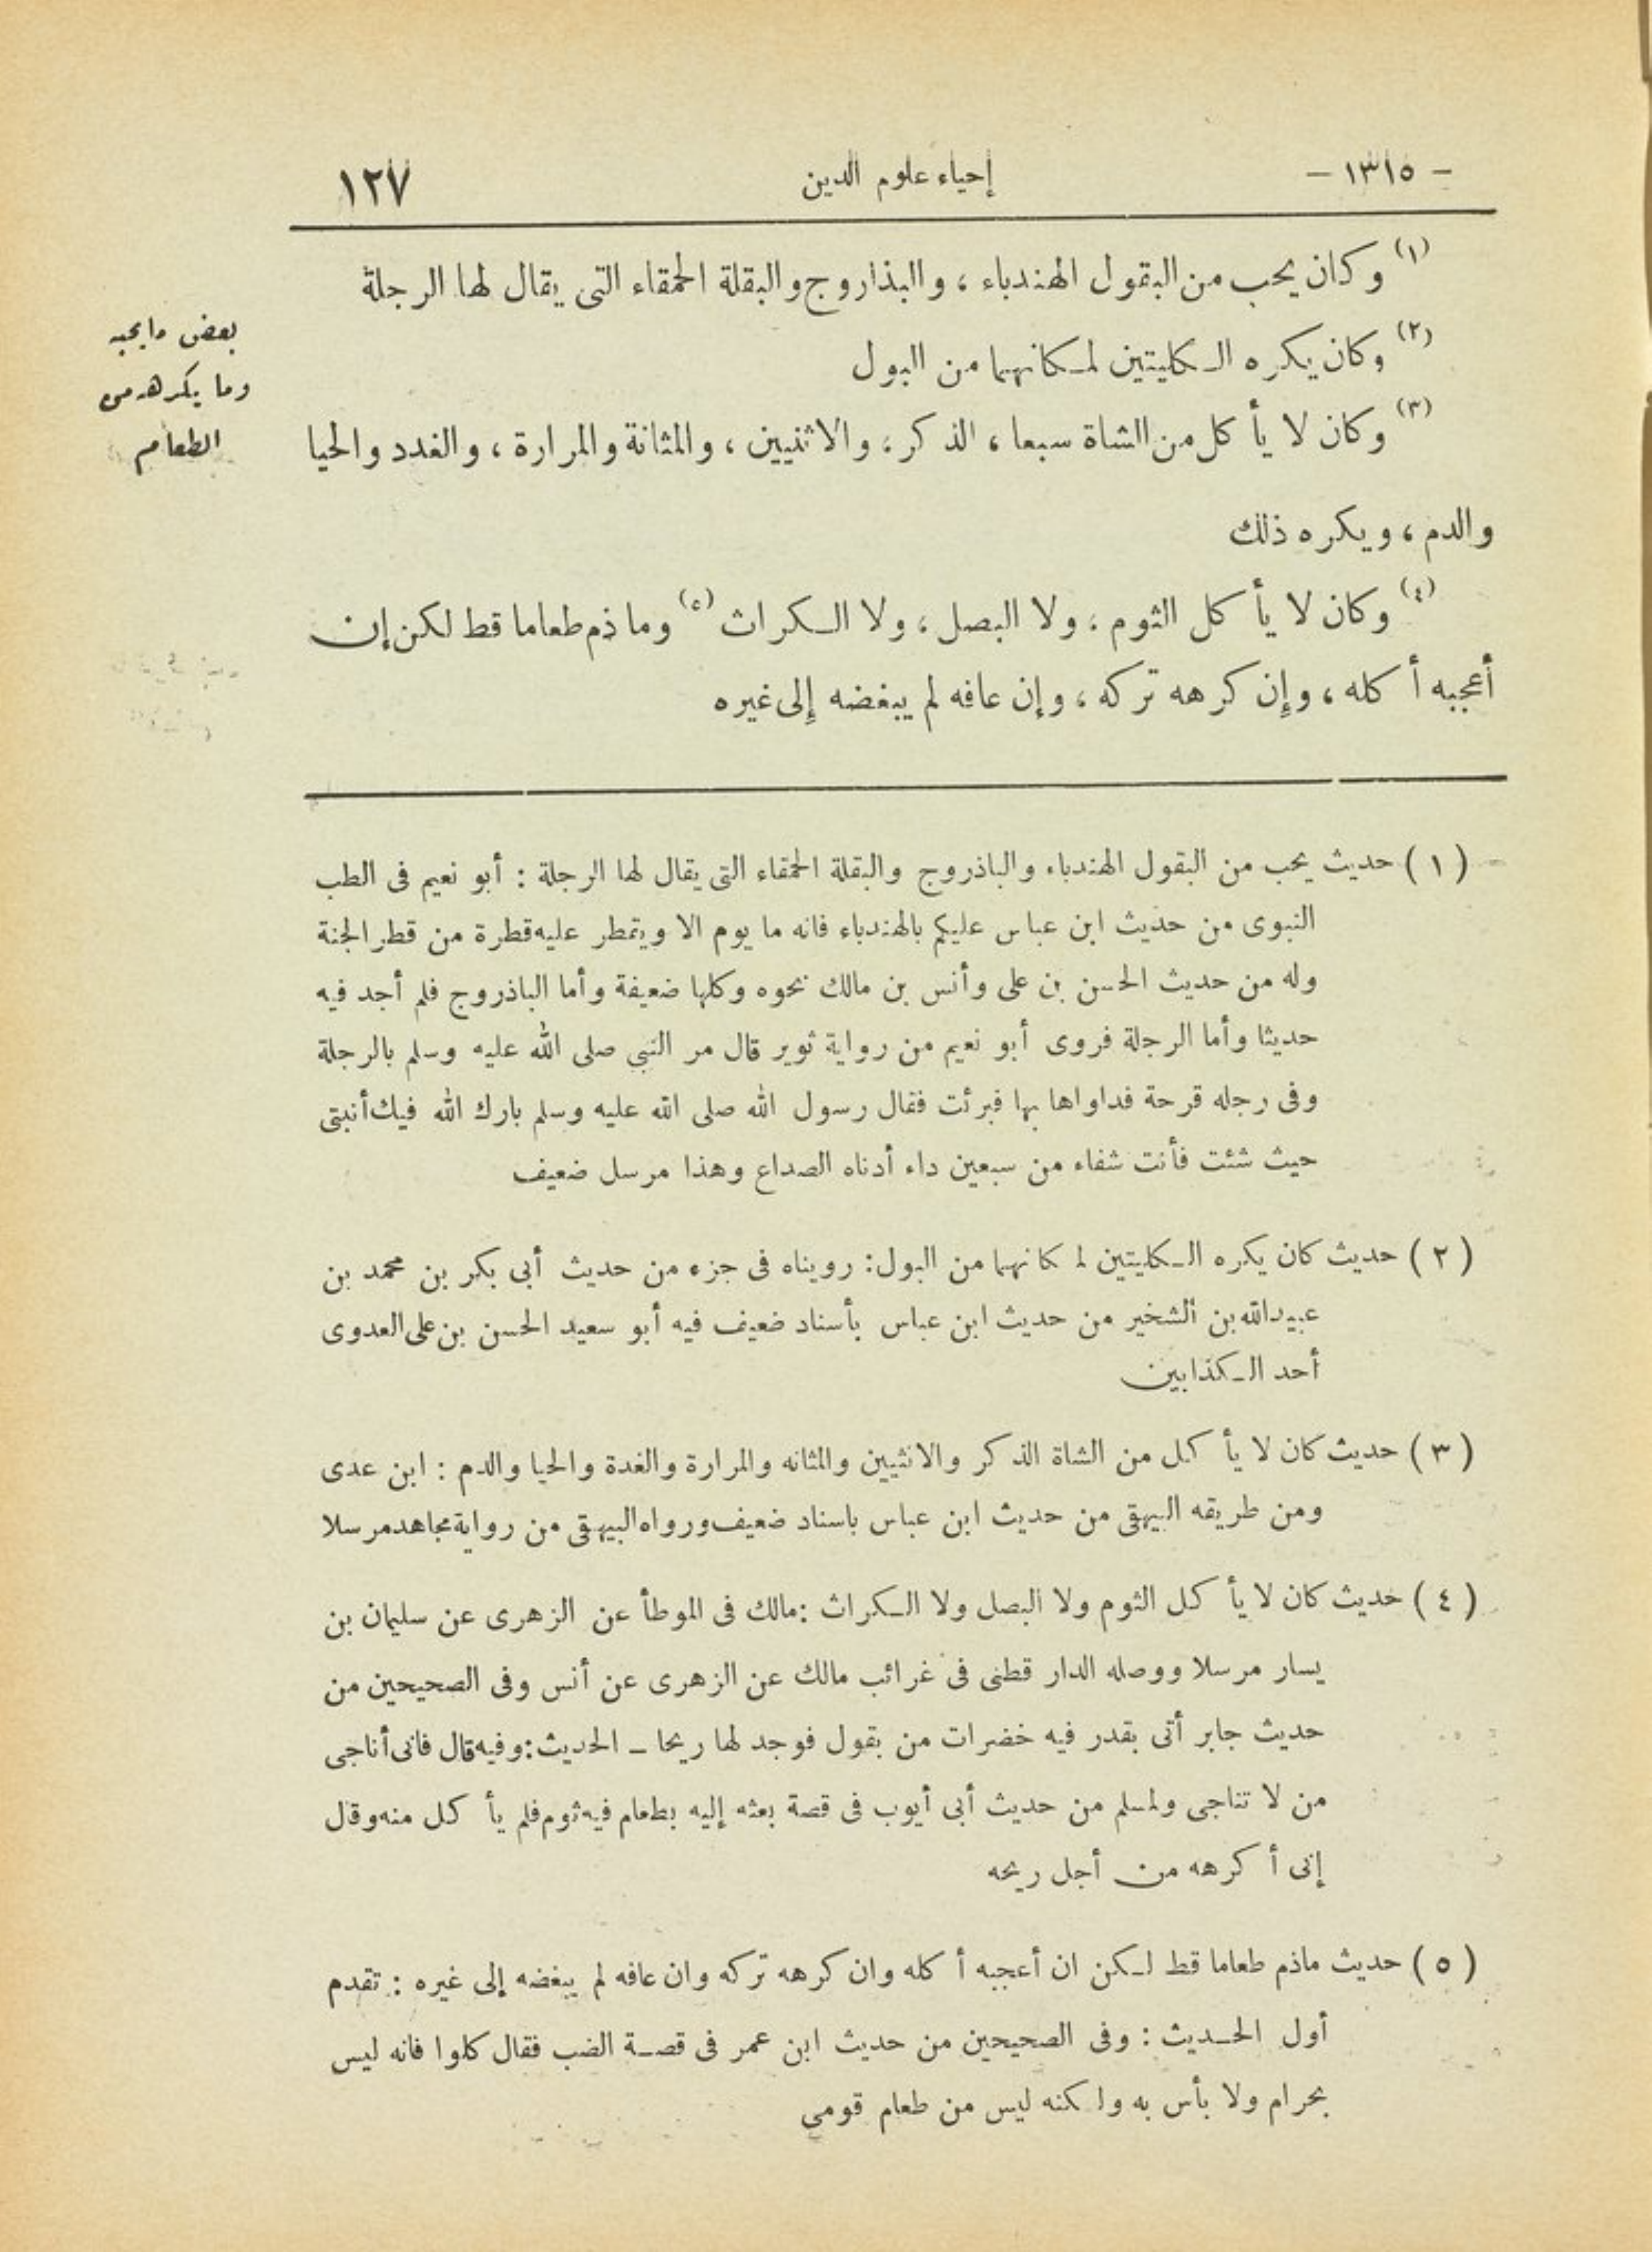 - ١٣١٥ -
إحياء علوم الدين
١٢٧
(١) وكان يحب من البقول الهندباء ، والبذاروج والبقلة الحمقاء التى يقال لها الرجلة
(٢) وكان يكره الكليتين لمكانهما من البول
(٣) وكان لا يأكل من الشاة سبعا ، الذكر ، والانثيين ، والمثانة والمرارة ، والغدد والحيا
والدم ، ويكره ذلك
(٤) وكان لا يأكل الثوم ، ولا البصل ، ولا الكراث (٥) وما ذم طعاما قط لكن إن
أعجبه أكله ، وإن كرهه تركه ، وإن عافه لم يبغضه إلى غيره
بعض ما يحبه
وما يكرهه من
الطعام
(١) حديث يحب من البقول الهندباء والباذروج والبقلة الحمقاء التى يقال لها الرجلة : أبو نعيم فى الطب
النبوى من حديث ابن عباس عليكم بالهندباء فانه ما يوم الا ويتمطر عليه قطرة من قطر الجنة
وله من حديث الحسن بن على وأنس بن مالك نحوه وكلها ضعيفة وأما الباذروج فلم أجد فيه
حديثا وأما الرجلة فروى أبو نعيم من رواية ثوير قال مر النبي صلى الله عليه وسلم بالرجلة
وفى رجله قرحة فداواها بها فبرئت فقال رسول الله صلى الله عليه وسلم بارك الله فيك أنبتى
حيث شئت فأنت شفاء من سبعين داء أدناه الصداع وهذا مرسل ضعيف
(٢) حديث كان يكره الكليتين لمكانهما من البول: رويناه فى جزء من حديث أبى بكر بن محمد بن
عبيد الله بن الشخير من حديث ابن عباس بأسناد ضعيف فيه أبو سعيد الحسن بن على العدوى
أحد الكذابين
(٣) حديث كان لا يأكل من الشاة الذكر والانثيين والمثانه والمرارة والغدة والحيا والدم : ابن عدى
ومن طريقه البيهقى من حديث ابن عباس باسناد ضعيف ورواه البيهقى من رواية مجاهد مرسلا
(٤) حديث كان لا يأكل الثوم ولا البصل ولا الكراث : مالك فى الموطأ عن الزهرى عن سليمان بن
يسار مرسلا ووصله الدار قطنى فى غرائب مالك عن الزهرى عن أنس وفى الصحيحين من
حديث جابر أتى بقدر فيه خضرات من بقول فوجد لها ريحا - الحديث : وفيه قال فانى أناجى
من لا تناجى ولمسلم من حديث أبى أيوب فى قصة بعثه إليه بطعام فيه ثوم فلم يأكل منه وقال
إنى أكرهه من أجل ريحه
(٥) حديث ماذم طعاما قط لكن ان أعجبه أكله وان كرهه تركه وان عافه لم يبغضه إلى غيره : تقدم
أول الحديث : وفى الصحيحين من حديث ابن عمر فى قصة الضب فقال كلوا فانه ليس
بحرام ولا بأس به ولكنه ليس من طعام قومى